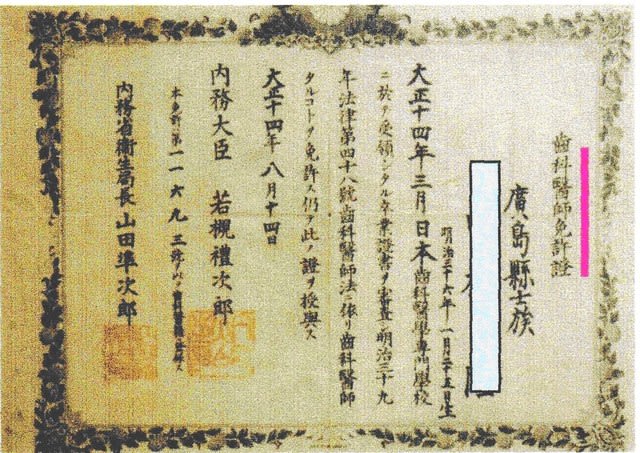 齒科醫師免許證
廣島縣士族
明治三十六年一月二十五日生
大正十四年三月日本齒科醫學專門學校
ニ於テ受領シタル卒業證書ヲ審査シ明治三十九
年法律第四十八號齒科醫師法ニ依リ齒科醫師
タルコトヲ免許ス仍テ此ノ證ヲ授與ス
大正十四年八月十四日
内務大臣 若槻禮次郎
本免許ハ第一一六九三號ヲ以テ齒科醫籍ニ登錄ス
内務省衞生局長山田準次郎